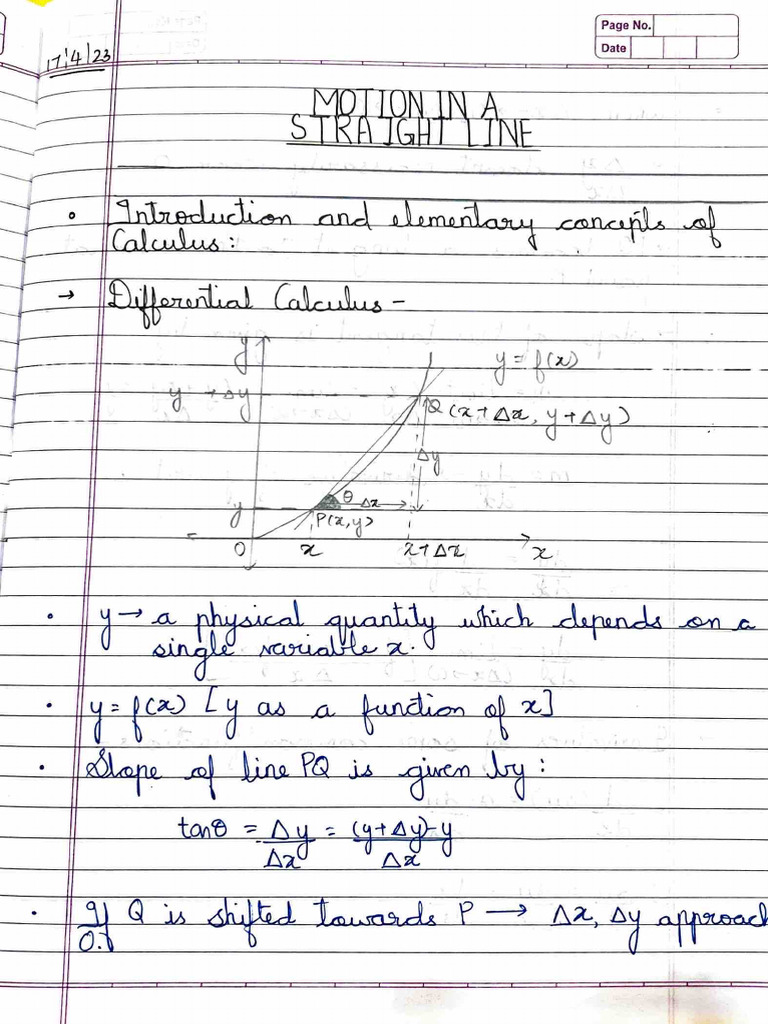 Page No.
Date
17/4/23
MOTION IN A
STRAIGHT LINE
• Introduction and elementary concepts of
Calculus:
→ Differential Calculus -
y
y = f(x)
y + Δy
Q (x + Δx, y + Δy)
Δy
θ Δx
y
P(x,y)
O x x + Δx x
• y → a physical quantity which depends on a
single variable x.
• y = f(x) [y as a function of x]
• Slope of line PQ is given by:
tanθ = Δy/Δx = (y+Δy)-y/Δx
• If Q is shifted towards P → Δx, Δy approach
0.